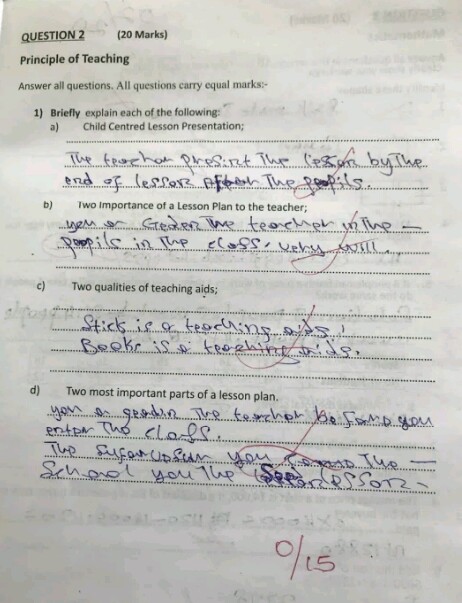 QUESTION 2 (20 Marks)
Principle of Teaching
Answer all questions. All questions carry equal marks:-
1) Briefly explain each of the following:
a) Child Centred Lesson Presentation;
The teacher presint The lesson by The
end of lesson After The poopils.
b) Two Importance of a Lesson Plan to the teacher;
you or The teacher in The
poopils in The class, very will.
c) Two qualities of teaching aids;
Stick is a teaching aids,
Books is a teaching aids.
d) Two most important parts of a lesson plan.
you or The teacher be fore you
enter The class.
The you The
School you The lesson
0/15